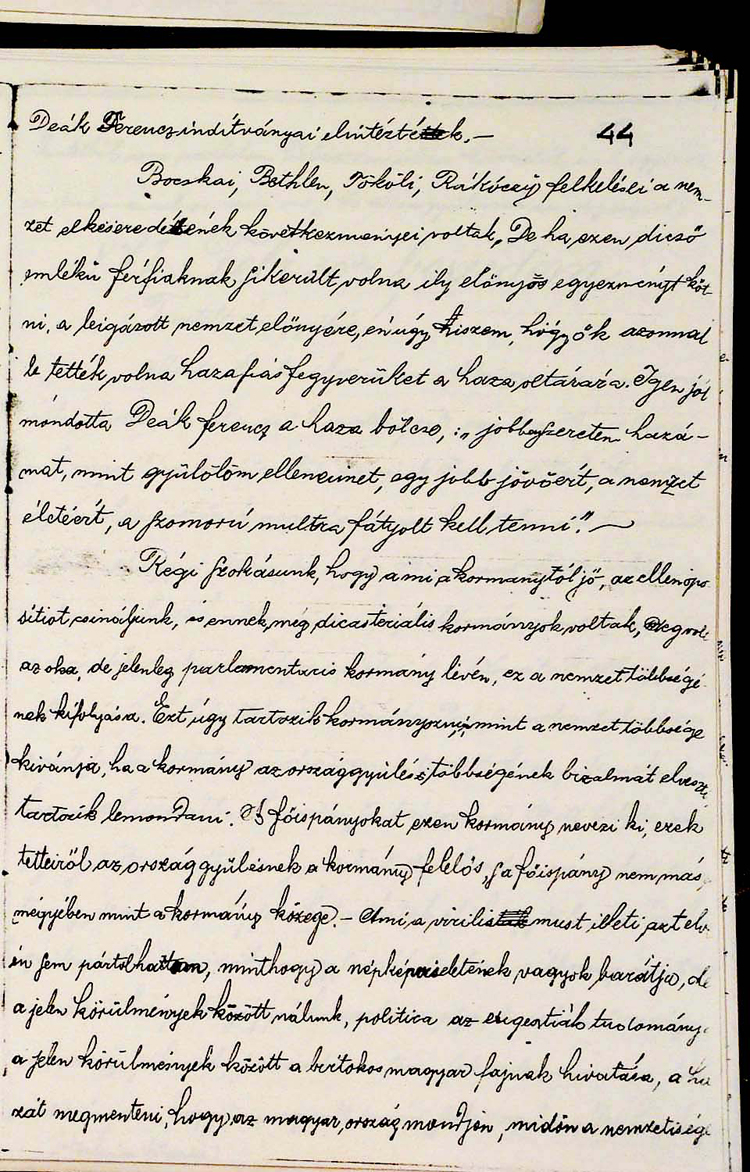 Deák Ferencz indítványai elintézték. — 44
Bocskai, Bethlen, Tököli, Rákóczy felkelései a nem-
zet elkeseredésének következményei voltak, De ha ezen dicső
emlékű férfiaknak sikerült volna ily előnyös egyezményt köt-
ni, a leigázott nemzet előnyére, én úgy hiszem, hogy ők azonnal
le tették volna hazafias fegyverüket a haza oltárára. Igen jól
mondotta Deák ferencz a haza bölcse, :„ jobban szeretem hazá-
mat, mint gyűlölöm elleneimet, egy jobb jövőért, a nemzet
életéért, a szomorú multra fátyolt kell tenni." —
Régi szokásunk, hogy a mi a kormánytól jő, az ellen opo
sitiot csináljunk, és ennek, még dicasteriális kormányok voltak, meg volt
az oka, de jelenleg parlamentaris kormány lévén, ez a nemzet többségé-
nek kifolyása. Ezt úgy tartozik kormányozni, mint a nemzet többsége
kivánja, ha a kormány az országgyülés többségének bizalmát elveszti
tartozik lemondani. A főispányokat ezen kormány nevezi ki, ezek
tetteiről az országgyülésnek a kormány felelős, s a főispány nem más,
mégyében mint a kormány közege. — Ami a virilis must illeti, azt elv-
én sem pártolhattam, minthogy a népképviseletének vagyok barátja, de
a jelen körülmények között nálunk, politica az exigentiák tudománya
a jelen körülmények között a birtokos magyar fajnak hivatása, a ha
zát megmenteni, hogy az magyar ország mondjon, midőn a nemzetiség